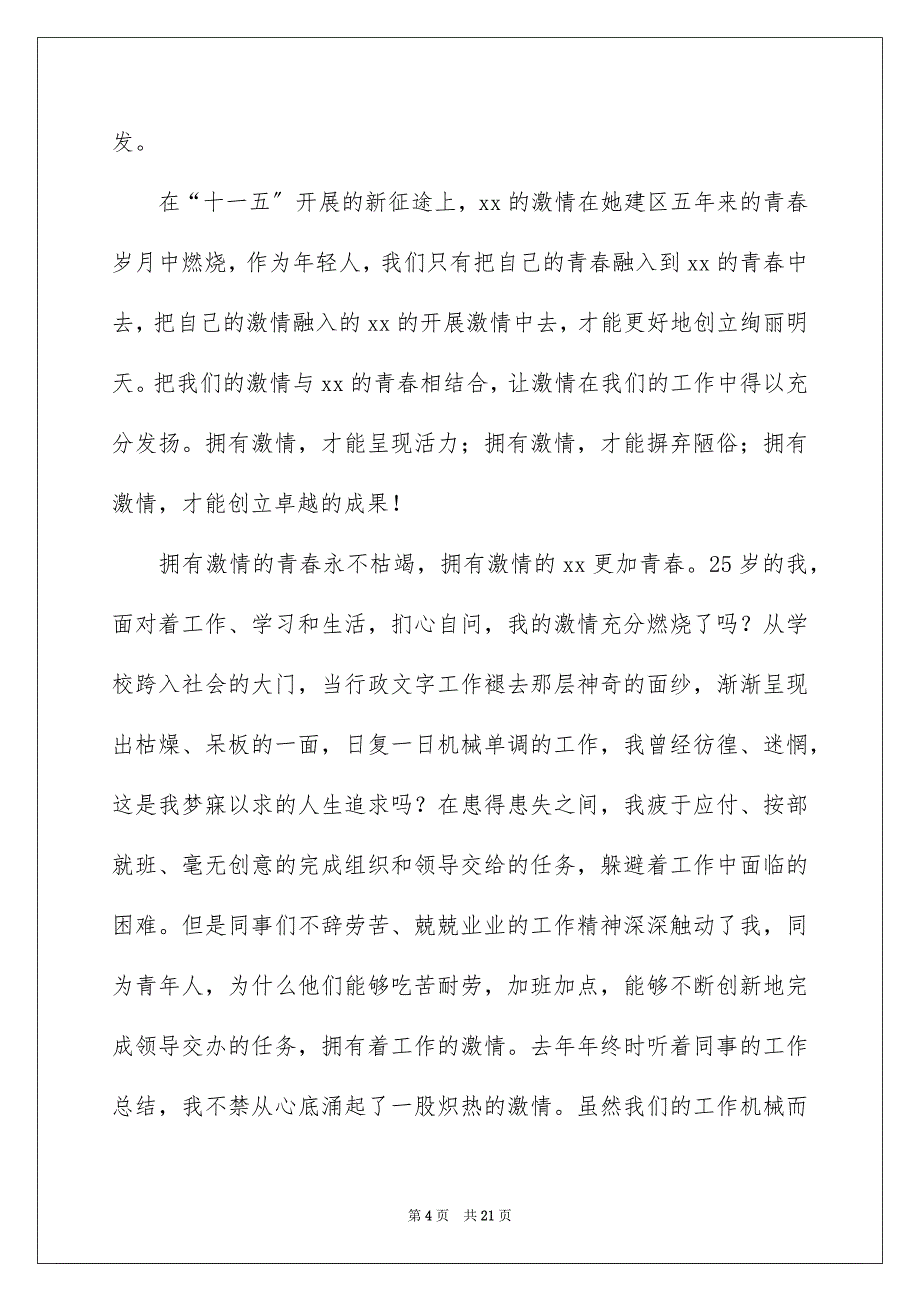 发。
在“十一五〞开展的新征途上，xx 的激情在她建区五年来的青春
岁月中燃烧，作为年轻人，我们只有把自己的青春融入到 xx 的青春中
去，把自己的激情融入的 xx 的开展激情中去，才能更好地创立绚丽明
天。把我们的激情与 xx 的青春相结合，让激情在我们的工作中得以充
分发扬。拥有激情，才能呈现活力；拥有激情，才能摒弃陋俗；拥有
激情，才能创立卓越的成果！
拥有激情的青春永不枯竭，拥有激情的 xx 更加青春。25 岁的我，
面对着工作、学习和生活，扪心自问，我的激情充分燃烧了吗？从学
校跨入社会的大门，当行政文字工作褪去那层神奇的面纱，渐渐呈现
出枯燥、呆板的一面，日复一日机械单调的工作，我曾经彷徨、迷惘，
这是我梦寐以求的人生追求吗？在患得患失之间，我疲于应付、按部
就班、毫无创意的完成组织和领导交给的任务，躲避着工作中面临的
困难。但是同事们不辞劳苦、兢兢业业的工作精神深深触动了我，同
为青年人，为什么他们能够吃苦耐劳，加班加点，能够不断创新地完
成领导交办的任务，拥有着工作的激情。去年年终时听着同事的工作
总结，我不禁从心底涌起了一股炽热的激情。虽然我们的工作机械而
第 4 页 共 21 页